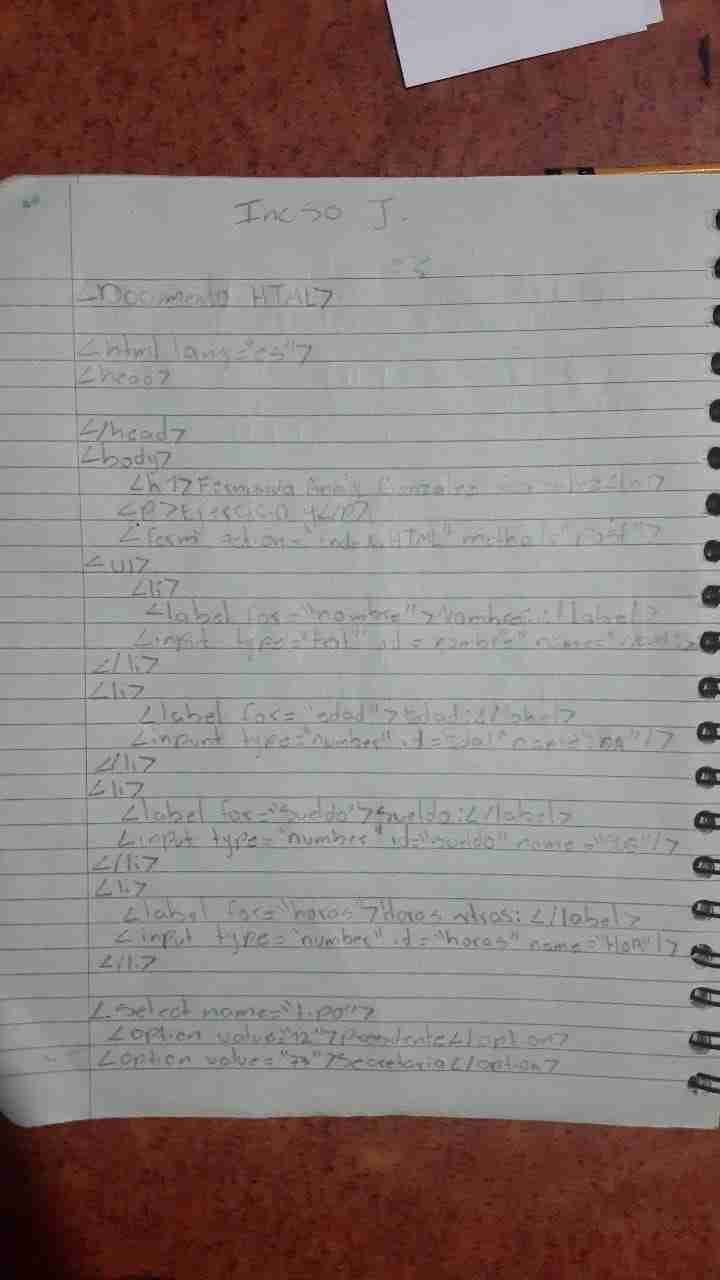 Inciso J.
<Documento HTML>
<html lang="es">
<head>
</head>
<body>
<h1>Fernanda Gonzalez
<p>Ejercicio 4</p>
<form action="index.HTML" method="post">
<ul>
<li>
<label for="nombre">Nombre:</label>
<input type="text" id="nombre" name=
</li>
<li>
<label for="edad">Edad:</label>
<inpunt type="number" id="edad" name="DA"/>
</li>
<li>
<label for="sueldo">Sueldo:</label>
<input type="number" id="sueldo" name=
</li>
<li>
<label for="horas">Horas extras:</label>
<input type="number" id="horas" name="HOR"/>
</li>
<select name="tipo">
<option value="12">Presidente</option>
<option value="73">Secretaria</option>